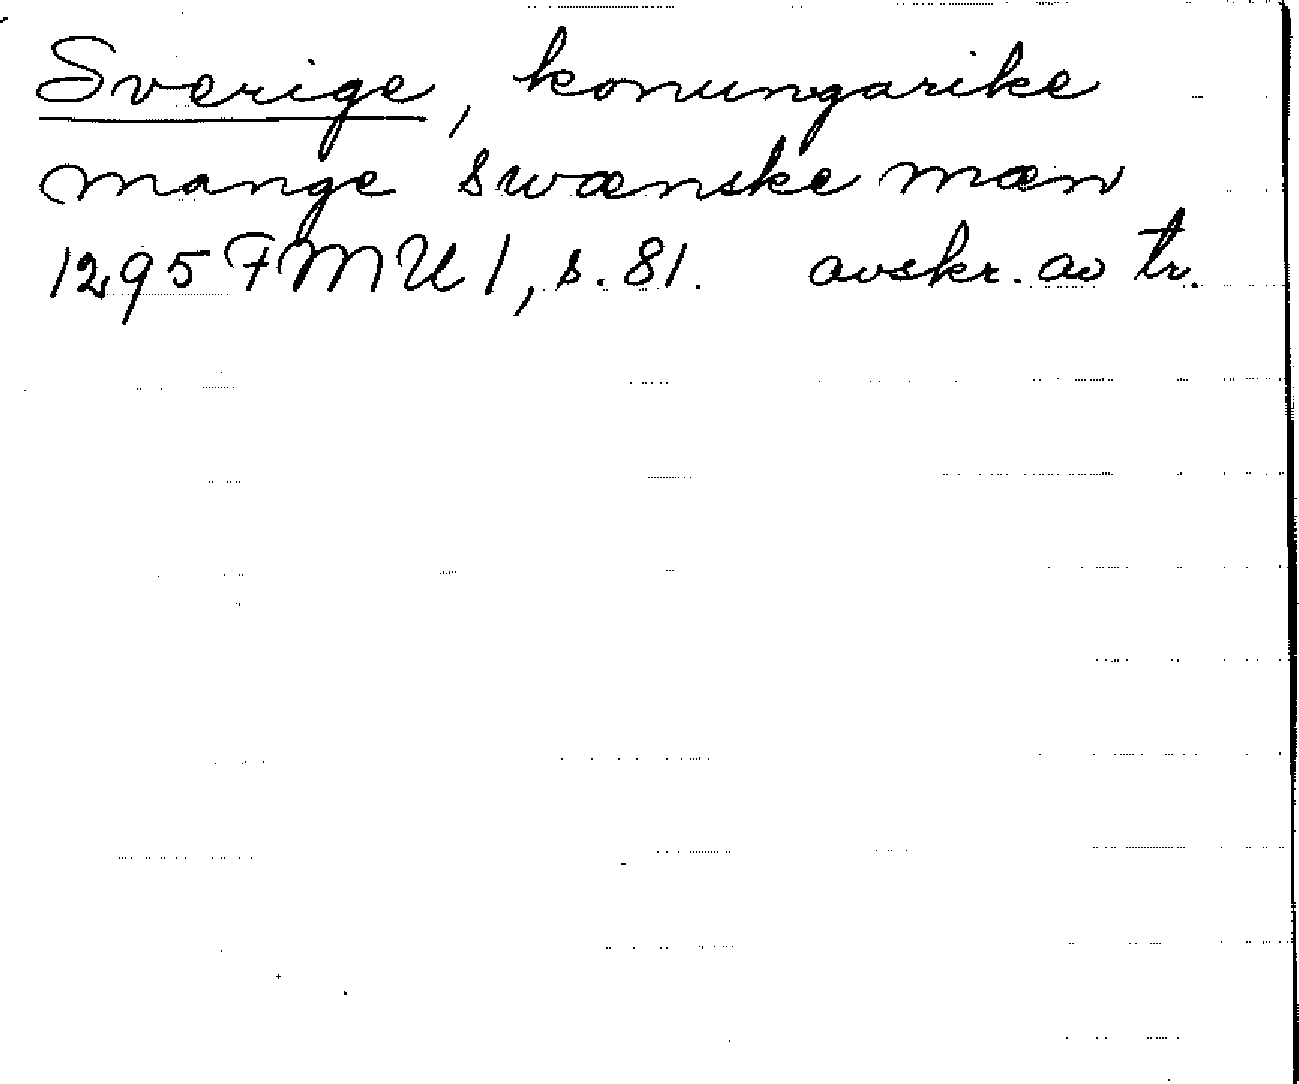 Sverige, konungarike
mange swænske mæn
1295 FMU 1, s. 81. avskr. av tr.